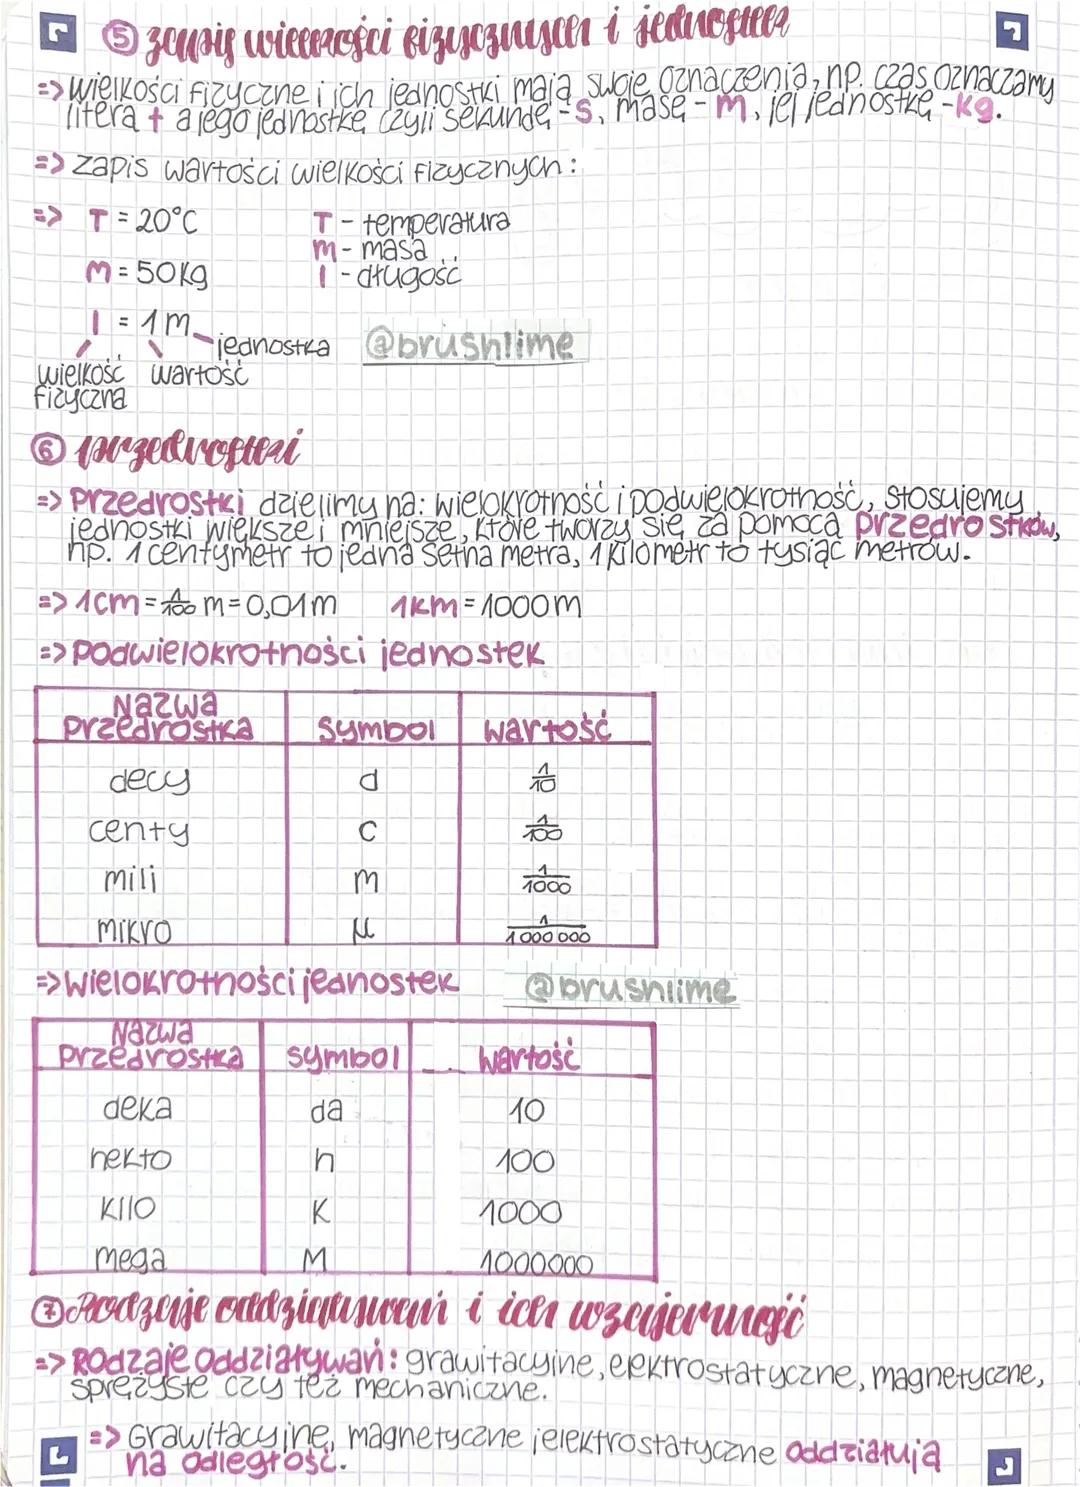 ⑤ zapis wielkości fizycznych i jednostek
=> Wielkości fizyczne i ich jednostki mają swoje oznaczenia, np. czas oznaczamy
literą t a jego jednostkę czyli sekundę - s, masę - m, jej jednostkę - kg.
=> zapis wartości wielkości fizycznych:
=> T = 20°C
T - temperatura
m - masa
m = 50kg
l - długość
l = 1m
jednostka
@brushlime
wielkość wartość
fizyczna
⑥ przedrostki
=> Przedrostki dzielimy na: wielokrotność i podwielokrotność, stosujemy
jednostki większe i mniejsze, które tworzy się za pomocą przedrostków,
np. 1 centymetr to jedna setna metra, 1 kilometr to tysiąc metrów.
=> 1cm = 1/100 m = 0,01m 1km = 1000m
=> podwielokrotności jednostek
Nazwa
przedrostka symbol wartość
decy d 1/10
centy c 1/100
mili m 1/1000
mikro μ 1/1 000 000
=> wielokrotności jednostek @brushlime
Nazwa
przedrostka symbol wartość
deka da 10
hekto h 100
kilo k 1000
mega M 1000000
⑦ Rodzaje oddziaływań i ich wzajemność
=> Rodzaje oddziaływań: grawitacyjne, elektrostatyczne, magnetyczne,
sprężyste czy też mechaniczne.
=> Grawitacyjne, magnetyczne i elektrostatyczne oddziałują
na odległość.